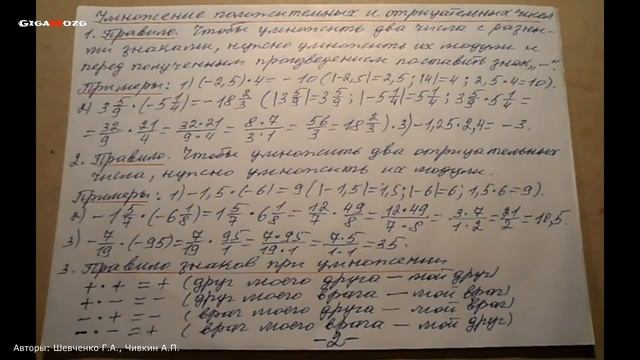 GIGAMOZG
Умножение положительных и отрицательных чисел
1. Правило. Чтобы умножить два числа с разны-
ми знаками, нужно умножить их модули и
перед полученным произведением поставить знак „–".
Примеры: 1) (-2,5)·4 = -10 (|-2,5|=2,5; |4|=4; 2,5·4=10).
2) 3 5/9·(-5 1/4) = -18 2/3 (|3 5/9|=3 5/9; |-5 1/4|=5 1/4; 3 5/9·5 1/4 =
= 32/9 · 21/4 = 32·21/9·4 = 8·7/3·1 = 56/3 = 18 2/3). 3) -1,25·2,4 = -3.
2. Правило. Чтобы умножить два отрицательных
числа, нужно умножить их модули.
Примеры: 1) -1,5·(-6) = 9 (|-1,5|=1,5; |-6|=6; 1,5·6=9).
2) -1 5/7·(-6 1/8) = 1 5/7·6 1/8 = 12/7 · 49/8 = 12·49/7·8 = 3·7/1·2 = 21/2 = 10,5.
3) -7/19·(-95) = 7/19 · 95/1 = 7·95/19·1 = 7·5/1·1 = 35.
3. Правило знаков при умножении
+ · + = + (друг моего друга — мой друг)
+ · – = – (друг моего врага — мой враг)
– · + = – (враг моего друга — мой враг)
– · – = + (враг моего врага — мой друг)
-2-
Авторы: Шевченко Г.А., Чивкин А.П.